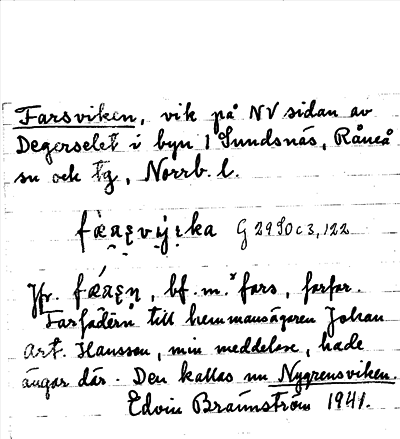 Farsviken, vik på NV sidan av
Degerselet i byn 1 Sundsnäs, Råneå
sn och tg, Norrb. l.
G 2950c3, 122
Jfr. bf. m. fars, farfar.
Farfadern till hemmansägaren Johan
Art. Hansson, min meddelare, hade
ängar där. Den kallas nu Nygrensviken.
Edvin Brännström 1941.